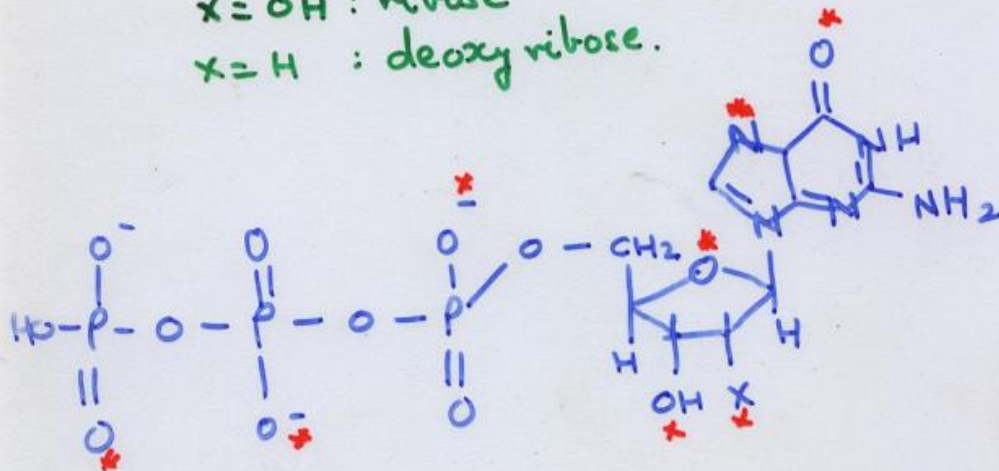 x = OH : ribose
x = H : deoxy ribose.
O
N NH
N N NH2
O⁻ O O⁻ O – CH2 O
HO–P–O–P–O–P
H H
O O⁻ O OH X